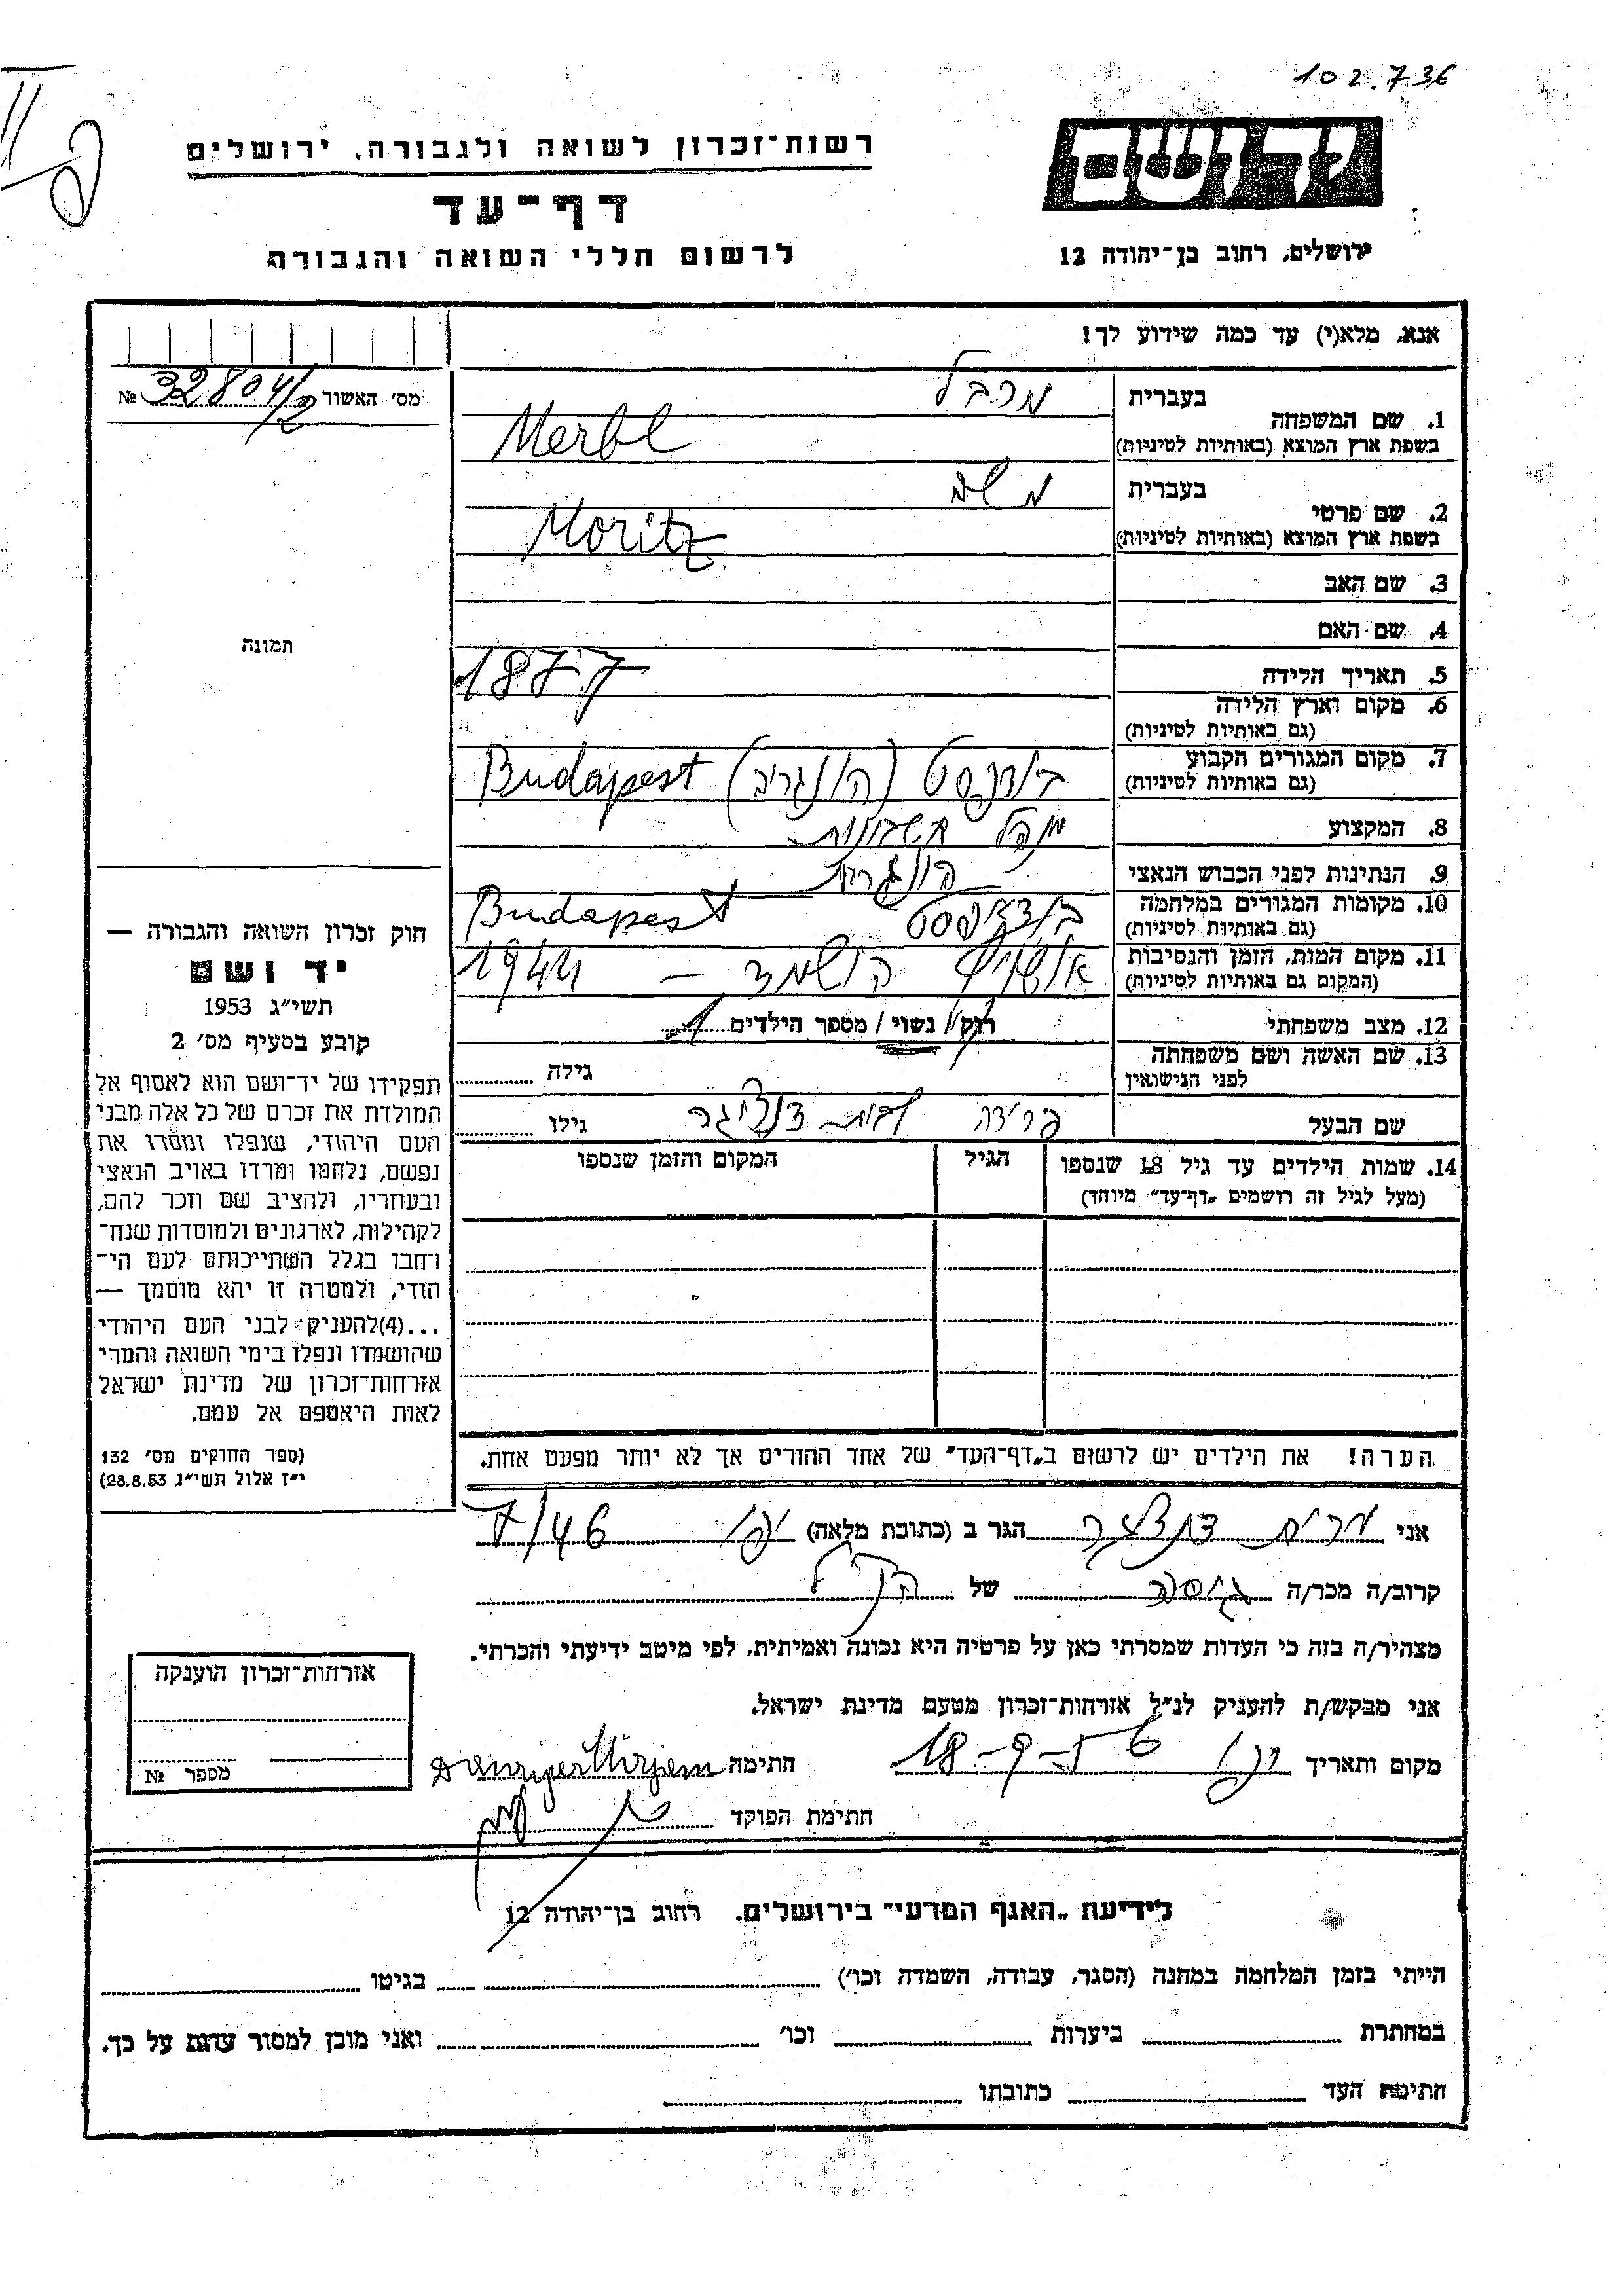 102.736
יד ושם
רשות־זכרון לשואה ולגבורה, ירושלים
דף־עד
לרשום חללי השואה והגבורה
ירושלים, רחוב בן־יהודה 12
אנא, מלא(י) עד כמה שידוע לך!
מס׳ האשור 32804/2 №
בעברית מרבל
1. שם המשפחה
בשפת ארץ המוצא (באותיות לטיניות) Merbl
בעברית משה
2. שם פרטי
בשפת ארץ המוצא (באותיות לטיניות) Moritz
3. שם האב
4. שם האם
תמונה
5. תאריך הלידה 1877
6. מקום וארץ הלידה
(גם באותיות לטיניות)
7. מקום המגורים הקבוע בודפסט (הונגריה) Budapest
(גם באותיות לטיניות)
8. המקצוע מנהל חשבונות
9. הנתינות לפני הכבוש הנאצי הונגרית
10. מקומות המגורים במלחמה בודפסט Budapest
(גם באותיות לטיניות)
11. מקום המות, הזמן והנסיבות אושויץ הושמד – 1944
(המקום גם באותיות לטיניות)
12. מצב משפחתי רוק / נשוי / מספר הילדים 1
13. שם האשה ושם משפחתה
לפני הנישואין גילה
פרידה לבית דנציגר
שם הבעל גילו
14. שמות הילדים עד גיל 18 שנספו הגיל המקום והזמן שנספו
(מעל לגיל זה רושמים „דף־עד” מיוחד)
חוק זכרון השואה והגבורה —
יד ושם
תשי״ג 1953
קובע בסעיף מס׳ 2
תפקידו של יד־ושם הוא לאסוף אל
המולדת את זכרם של כל אלה מבני
העם היהודי, שנפלו ומסרו את
נפשם, נלחמו ומרדו באויב הנאצי
ובעוזריו, ולהציב שם וזכר להם,
לקהילות, לארגונים ולמוסדות שנח־
רבו בגלל השתייכותם לעם הי־
הודי, ולמטרה זו יהא מוסמך —
...(4)להעניק לבני העם היהודי
שהושמדו ונפלו בימי השואה והמרי
אזרחות־זכרון של מדינת ישראל
לאות היאספם אל עמם.
(ספר החוקים מס׳ 132
י״ז אלול תשי״ג 28.8.53)
הערה! את הילדים יש לרשום ב„דף־העד” של אחד ההורים אך לא יותר מפעם אחת.
אני מרים דנציגר הגר ב (כתובת מלאה) יפו 7/46
קרוב/ה מכר/ה גיסה של הנ״ל
מצהיר/ה בזה כי העדות שמסרתי כאן על פרטיה היא נכונה ואמיתית, לפי מיטב ידיעתי והכרתי.
אני מבקש/ת להעניק לנ״ל אזרחות־זכרון מטעם מדינת ישראל.
מקום ותאריך יפו 18-9-56 חתימה Danziger Mirjam
חתימת הפוקד
אזרחות־זכרון הוענקה
מספר №
לידיעת „האגף המדעי” בירושלים, רחוב בן־יהודה 12
הייתי בזמן המלחמה במחנה (הסגר, עבודה, השמדה וכו׳) בגיטו
במחתרת ביערות וכו׳ ואני מוכן למסור עדות על כך.
חתימת העד כתובתו